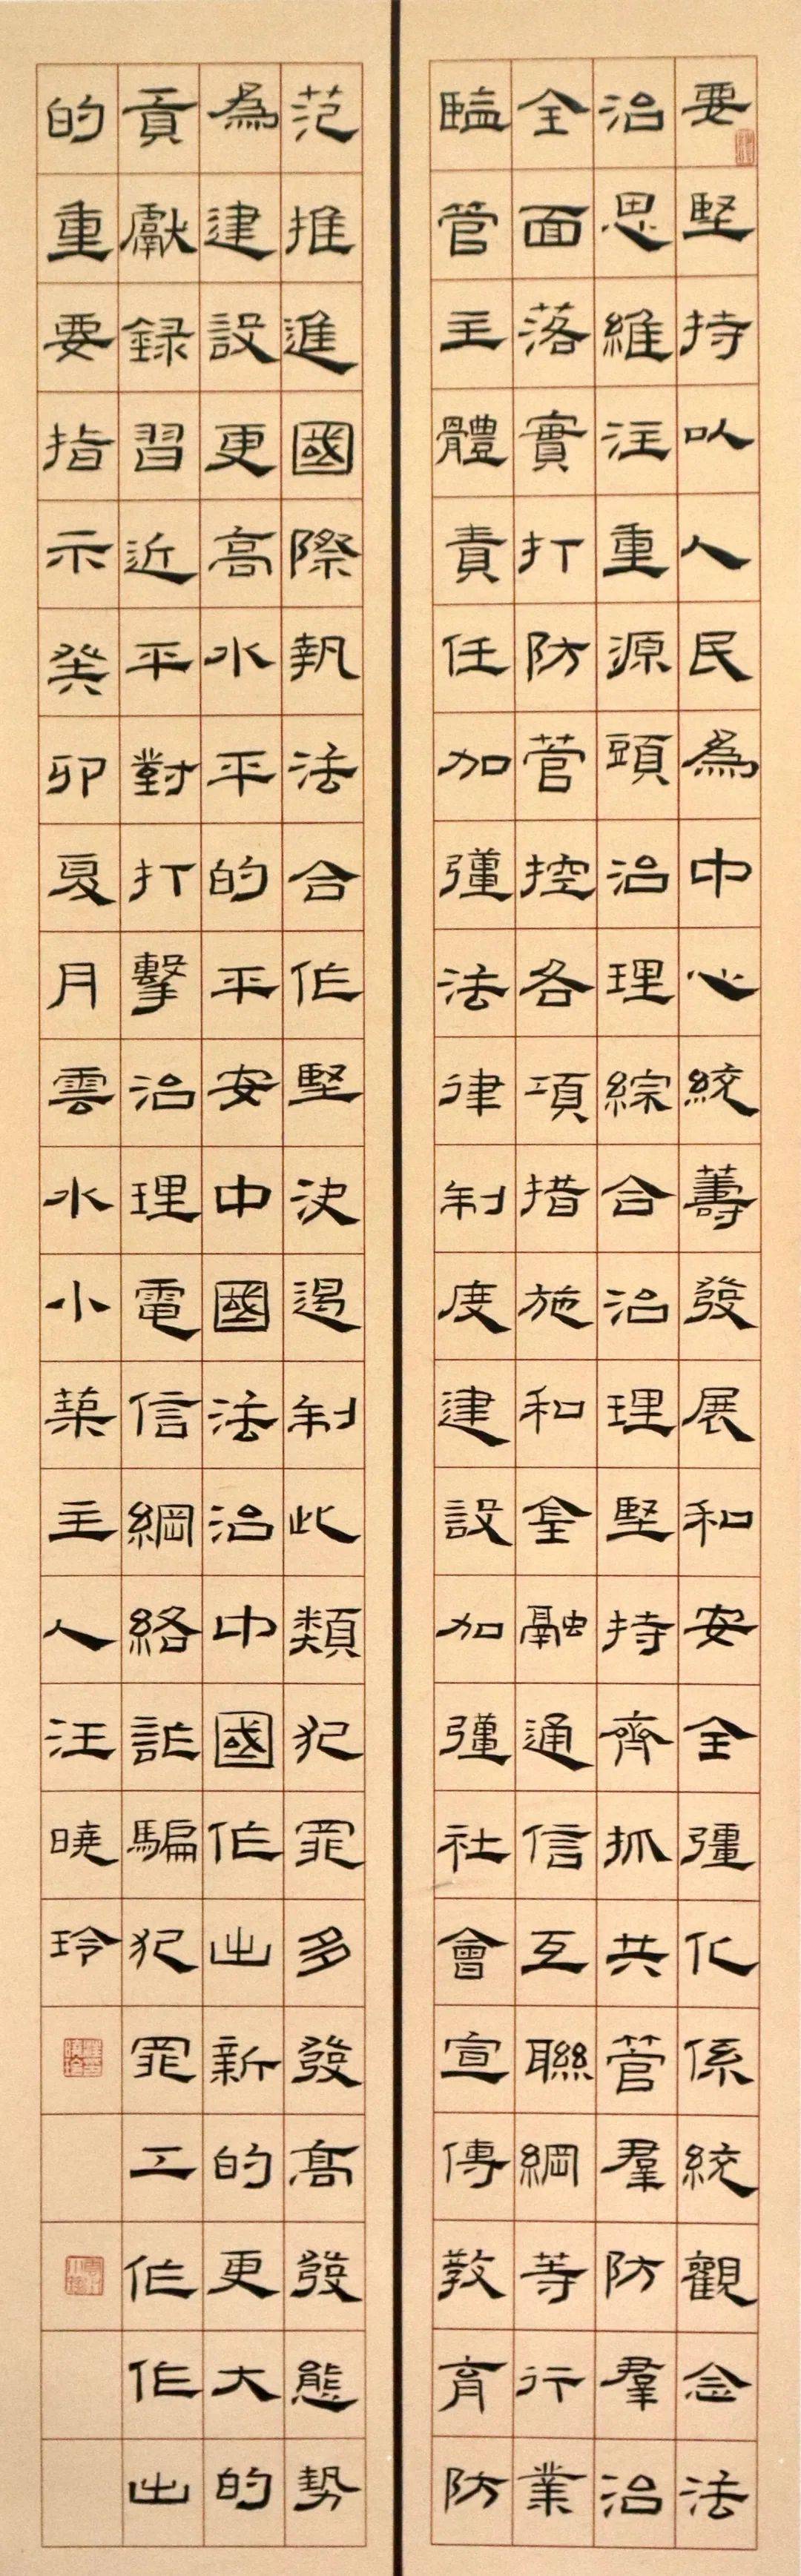 要堅持以人民為中心統籌發展和安全彊化係統觀念法
治思維注重源頭治理綜合治理堅持齊抓共管羣防羣治
全面落實打防管控各項措施和金融通信互聯網等行業
監管主體責任加彊法律制度建設加彊社會宣傳教育防
范推進國際執法合作堅決遏制此類犯罪多發高發態勢
為建設更高水平的平安中國法治中國作出新的更大的
貢獻録習近平對打擊治理電信網絡詐騙犯罪工作作出
的重要指示癸卯夏月雲水小築主人汪曉玲